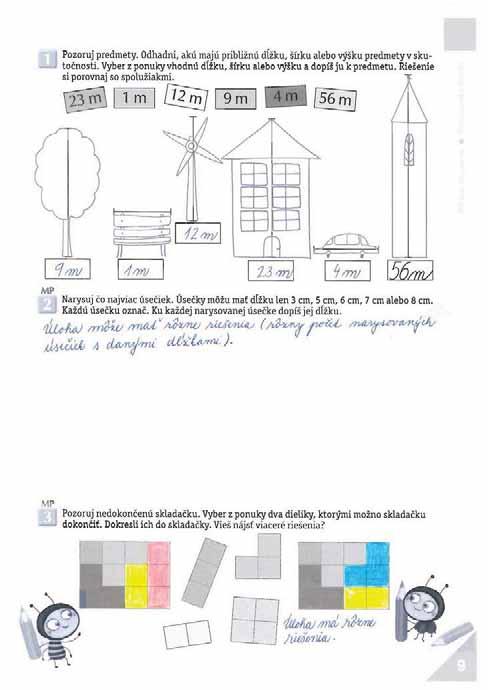 1 Pozoruj predmety. Odhadni, akú majú približnú dĺžku, šírku alebo výšku predmety v sku-
točnosti. Vyber z ponuky vhodnú dĺžku, šírku alebo výšku a dopíš ju k predmetu. Riešenie
si porovnaj so spolužiakmi.
23 m 1 m 12 m 9 m 4 m 56 m
12 m
9 m 1 m 23 m 4 m 56 m
MP
2 Narysuj čo najviac úsečiek. Úsečky môžu mať dĺžku len 3 cm, 5 cm, 6 cm, 7 cm alebo 8 cm.
Každú úsečku označ. Ku každej narysovanej úsečke dopíš jej dĺžku.
Úloha môže mať rôzne riešenia (rôzny počet narysovaných
úsečiek s danými dĺžkami).
MP
3 Pozoruj nedokončenú skladačku. Vyber z ponuky dva dieliky, ktorými možno skladačku
dokončiť. Dokresli ich do skladačky. Vieš nájsť viaceré riešenia?
Úloha má rôzne
riešenia.
9